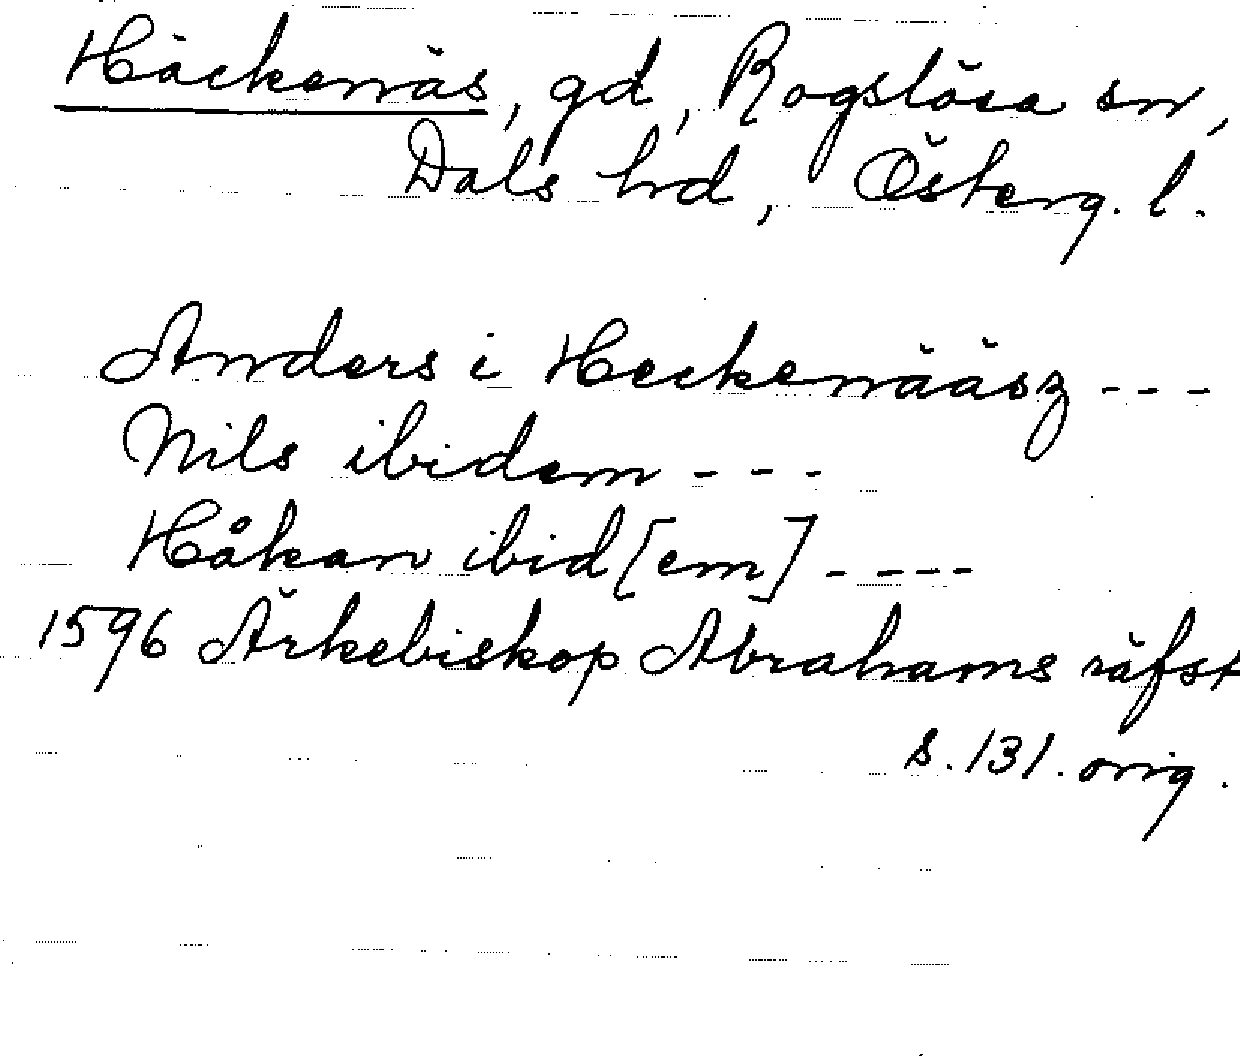 Häckenäs, gd, Rogslösa sn,
Dals hd, Österg. l.
Anders i Heckenääsz - - -
Nils ibidem - - -
Håkan ibid[em] - - - -
1596 Ärkebiskop Abrahams räfst
s. 131. orig.